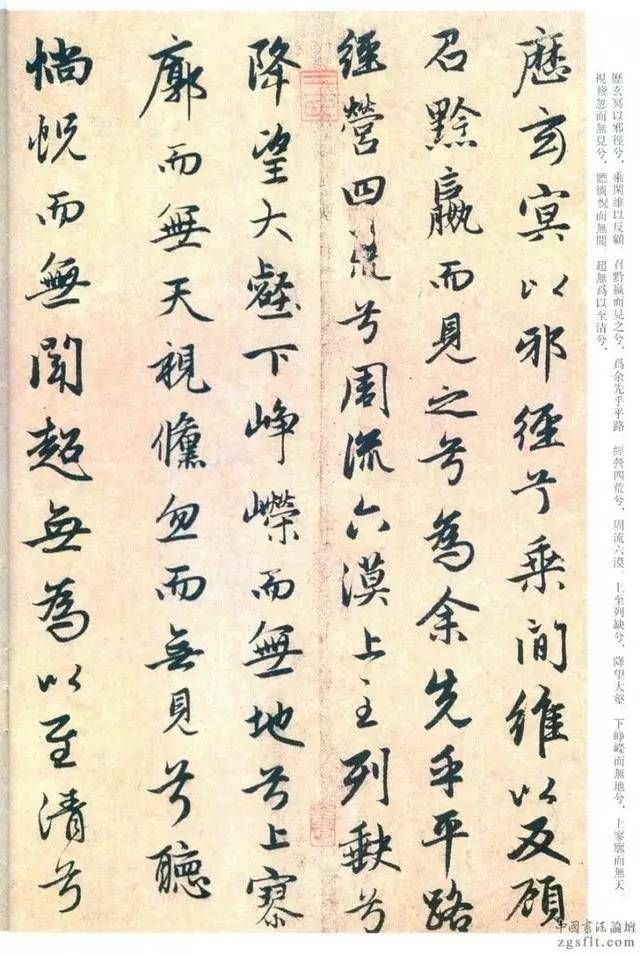 歷玄冥以邪徑兮，乘閒維以反顧　召黔嬴而見之兮，爲余先乎平路　經營四荒兮，周流六漠。上至列缺兮，降望大壑　下崢嶸而無地兮，上寥廓而無天。
視倏忽而無見兮，聽惝怳而無聞　超無爲以至清兮，
歷玄冥以邪徑兮乘閒維以反顧
召黔嬴而見之兮為余先乎平路
經營四荒兮周流六漠上至列缺兮
降望大壑下崢嶸而無地兮上寥
廓而無天視儵忽而無見兮聽
惝怳而無聞超無為以至清兮
中國書法論壇
zgsflt.com